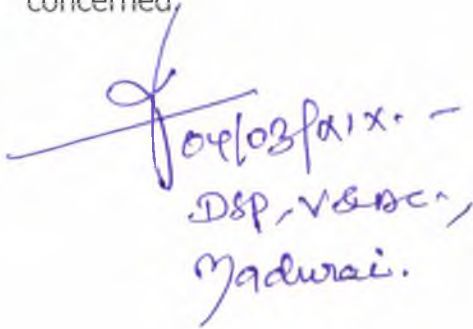 concerned.
04/03/
DSP, V&AC.,
Madurai.